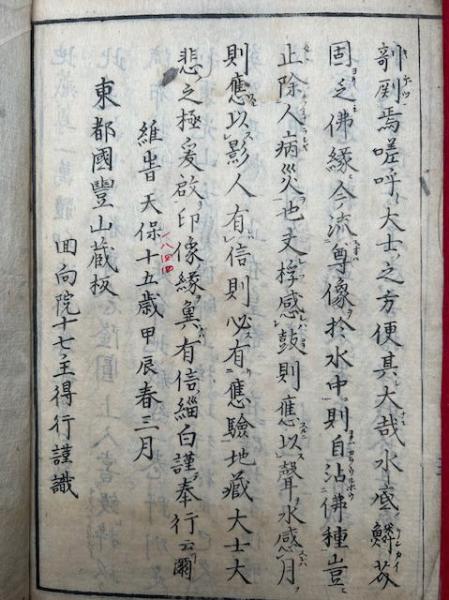 剞劂焉嗟呼大士之方便其大哉水底鱗芥
固乏佛緣今流尊像於水中則自沾佛種豈
止除人病災也支桴感鼓則應以聲水感月
則應以影人有信則必有應驗地藏大士大
悲之極爰啟印像緣冀有信緇白謹奉行云爾
維旹天保十五歲甲辰春三月
東都國豐山蔵板
回向院十七主得行謹識